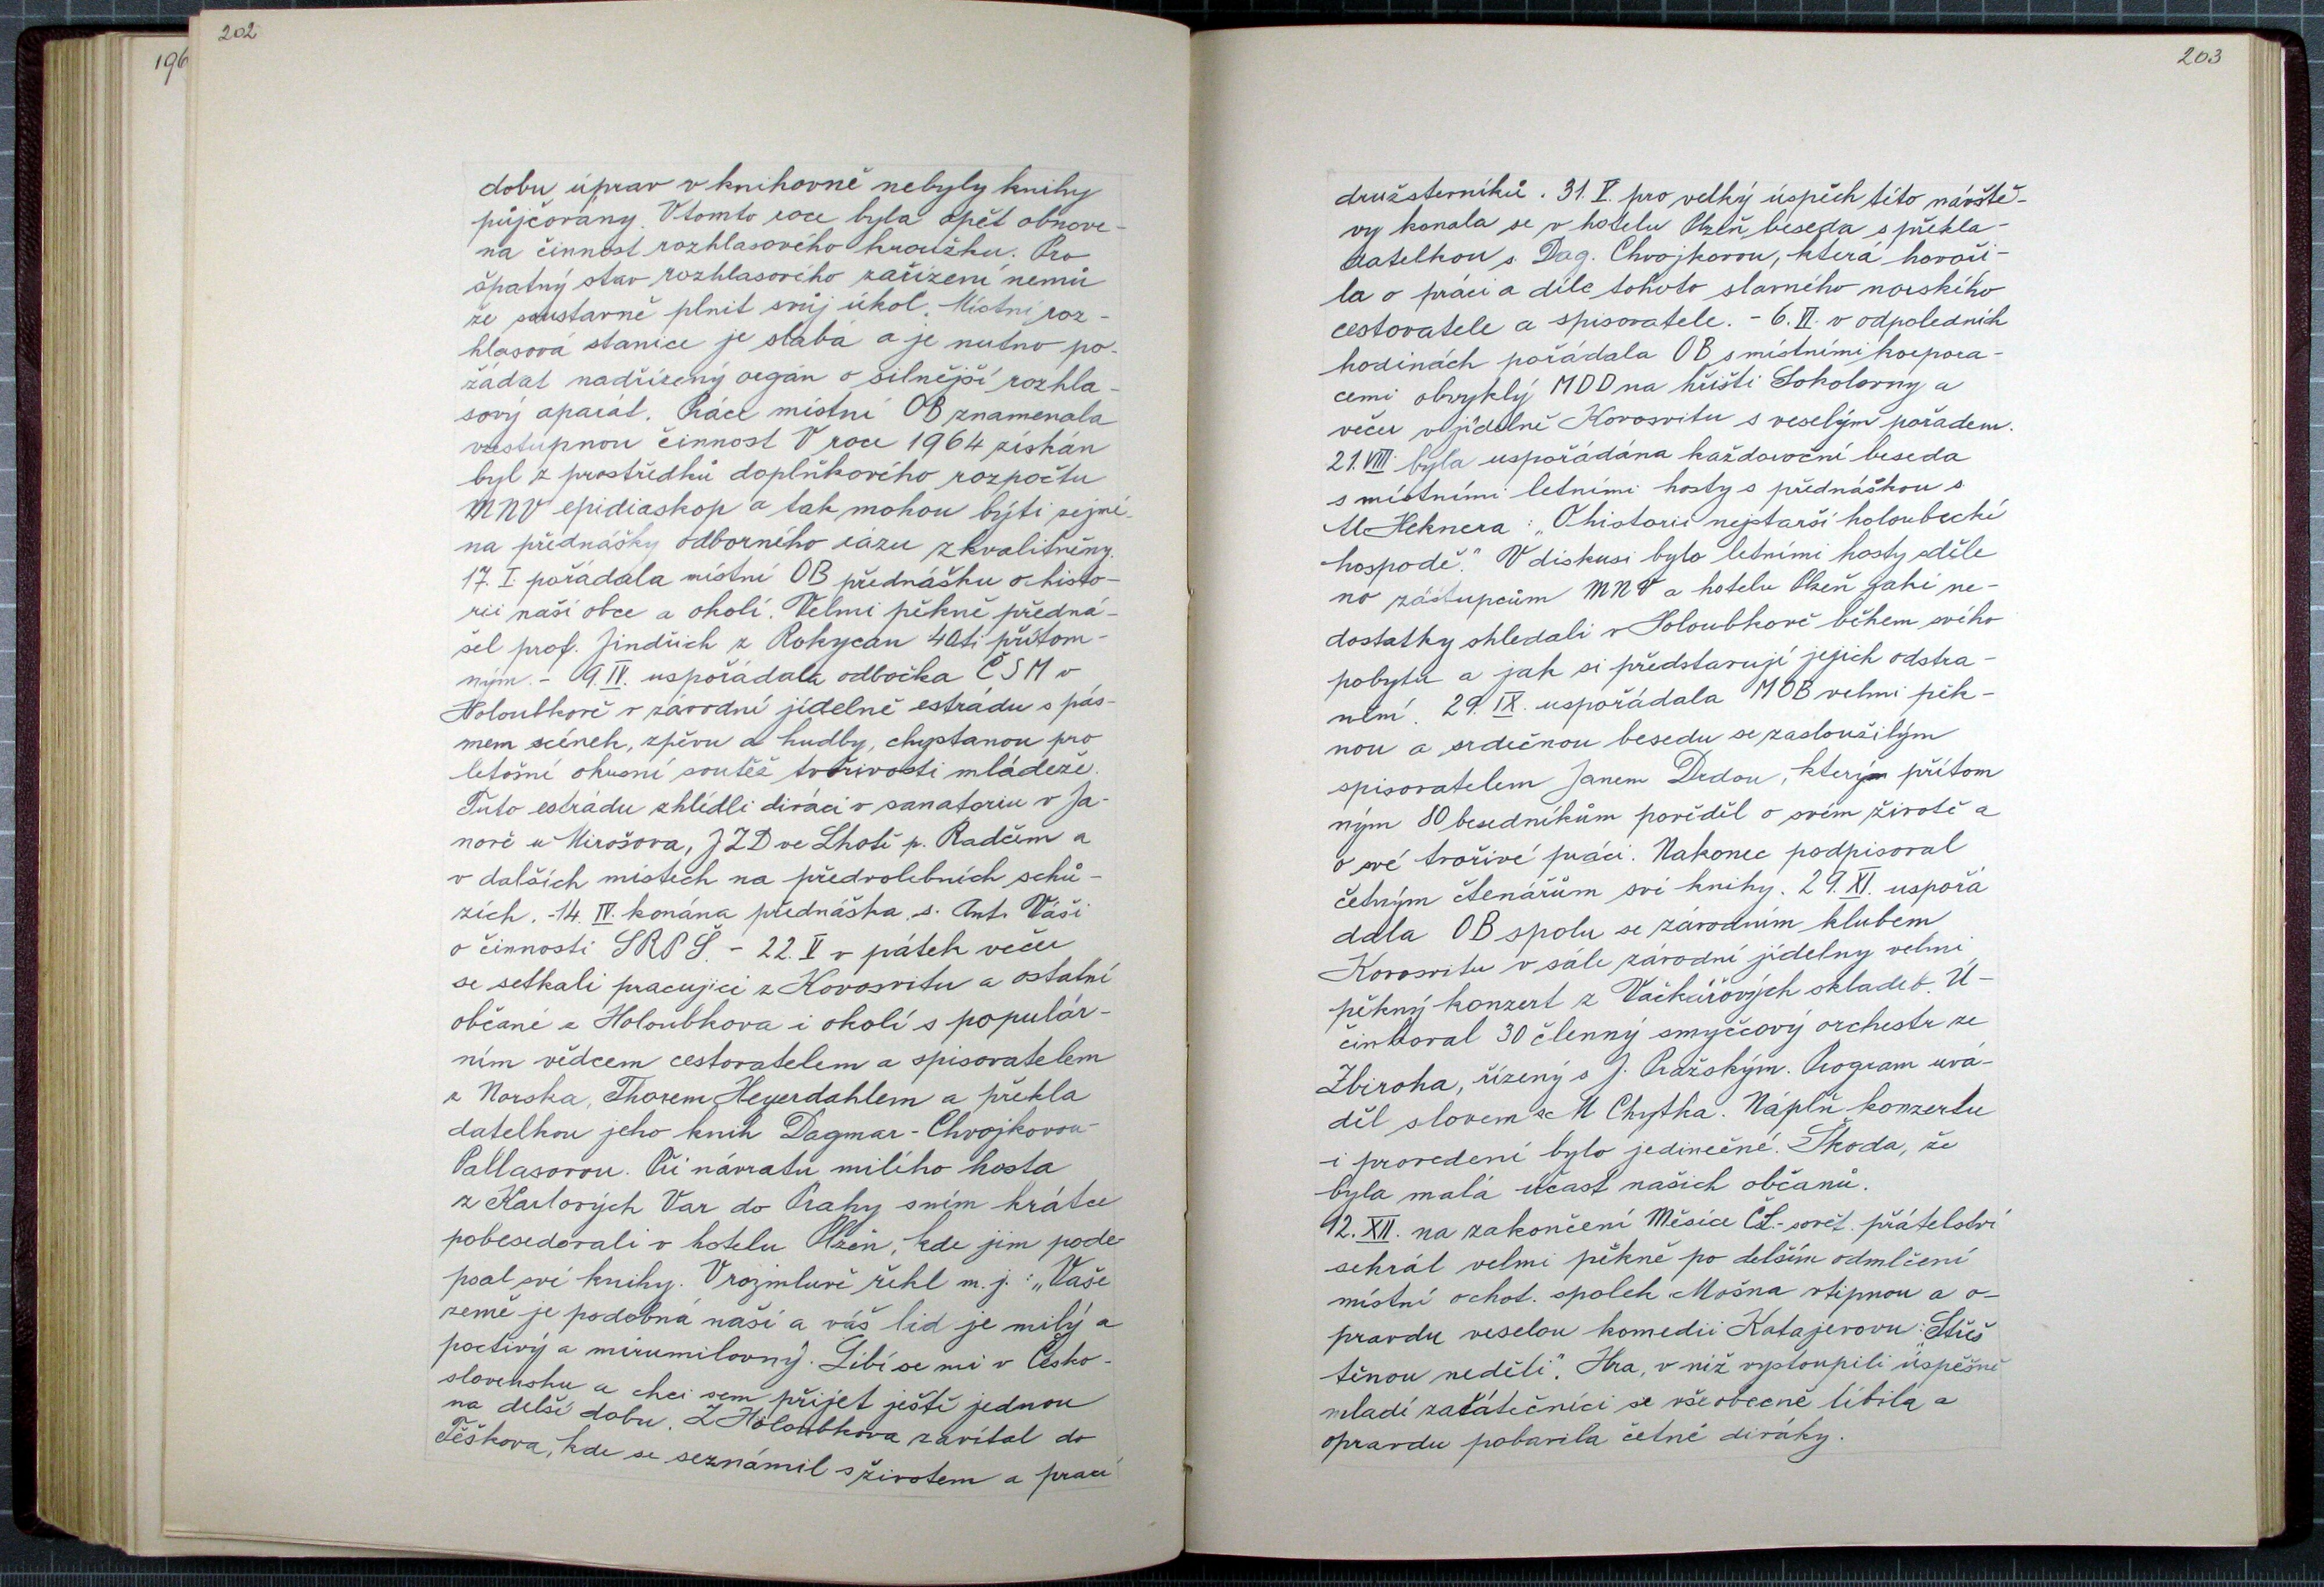 202
196
dobu úprav v knihovně nebyly knihy
půjčovány. V tomto roce byla opět obnove-
na činnost rozhlasového kroužku. Pro
špatný stav rozhlasového zařízení nemů
že soustavně plnit svůj úkol. Místní roz-
hlasová stanice je slabá a je nutno po-
žádat nadřízený orgán o silnější rozhla-
sový aparát. Práce místní OB znamenala
vzestupnou činnost V roce 1964 získán
byl z prostředků doplňkového rozpočtu
MNV epidiaskop a tak mohou býti zejmé-
na přednášky odborného rázu zkvalitněny.
17. I. pořádala místní OB přednášku o histo-
rii naší obce a okolí. Velmi pěkně předná-
šel prof. Jindřich z Rokycan 40ti přítom-
ným. - 9. IV. uspořádala odbočka ČSM v
Holoubkově v závodní jídelně estrádu s pás-
mem scének, zpěvu a hudby, chystanou pro
letošní okresní soutěž tvořivosti mládeže.
Tuto estrádu zhlédli diváci v sanatoriu v Ja-
nově u Mirošova, JZD ve Lhotě p. Radčem a
v dalších místech na předvolebních schů-
zích. - 14. IV. konána přednáška s. Ant. Váši
o činnosti SRPŠ. - 22. V v pátek večer
se setkali pracující z Kovosvitu a ostatní
občané z Holoubkova i okolí s populár-
ním vědcem cestovatelem a spisovatelem
z Norska, Thorem Heyerdahlem a překla
datelkou jeho knih Dagmar - Chvojkovou-
Pallasovou. Při návratu milého hosta
z Karlových Var do Prahy s ním krátce
pobesedovali v hotelu Plzeň, kde jim pode-
psal své knihy. V rozmluvě řekl m. j.: „Vaše
země je podobná naší a váš lid je milý a
poctivý a mírumilovný. Líbí se mi v Česko-
slovensku a chci sem přijet ještě jednou
na delší dobu. Z Holoubkova zavítal do
Těškova, kde se seznámil s životem a prací
203
družstevníků. 31. V. pro velký úspěch této návště-
vy konala se v hotelu Plzeň beseda s překla-
datelkou s. Dag. Chvojkovou, která hovoři-
la o práci a díle tohoto slavného norského
cestovatele a spisovatele. - 6. VI. v odpoledních
hodinách pořádala OB s místními korpora-
cemi obvyklý MDD na hřišti Sokolovny a
večer v jídelně Kovosvitu s veselým pořadem.
21. VIII. byla uspořádána každoroční beseda
s místními letními hosty s přednáškou s
M Heknera: „O historii nejstarší holoubecké
hospodě." V diskusi bylo letními hosty sděle
no zástupcům MNV a hotelu Plzeň jaké ne-
dostatky shledali v Holoubkově během svého
pobytu a jak si představují jejich odstra-
nění. 29. IX. uspořádala MOB velmi pěk-
nou a srdečnou besedu se zasloužilým
spisovatelem Janem Drdou, kterým přítom
ným 80 besedníkům pověděl o svém životě a
o své tvořivé práci. Nakonec podpisoval
četným čtenářům své knihy. 29. XI. uspořá
dala OB spolu se závodním klubem
Kovosvitu v sále závodní jídelny velmi
pěkný konzert z Vačkářových skladeb. Ú-
činkoval 30 členný smyčcový orchestr ze
Zbiroha, řízený s J. Pražským. Program uvá-
děl slovem s. M Chytka. Náplň konzertu
i provedení bylo jedinečné. Škoda, že
byla malá účast našich občanů.
12. XII. na zakončení Měsíce Čs.-sovět. přátelství
sehrál velmi pěkně po delším odmlčení
místní ochot. spolek Mošna vtipnou a o-
pravdu veselou komedii Katajevovu: „Střeš
těnou neděli". Hra, v níž vystoupili úspěšně
mladí začátečníci se všeobecně líbila a
opravdu pobavila četné diváky.